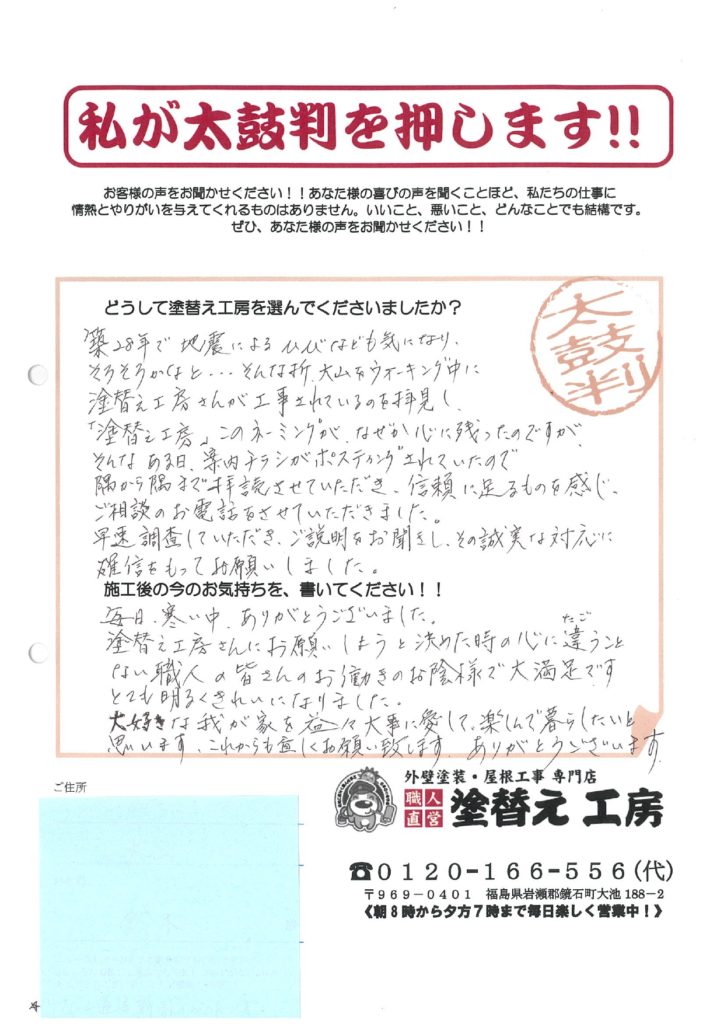 私が太鼓判を押します!!
お客様の声をお聞かせください!!あなた様の喜びの声を聞くことほど、私たちの仕事に
情熱とやりがいを与えてくれるものはありません。いいこと、悪いこと、どんなことでも結構です。
ぜひ、あなた様の声をお聞かせください!!
どうして塗替え工房を選んでくださいましたか?
太鼓判
築28年で地震によるひびなども気になり、
そろそろかなと・・・そんな折、大山をウォーキング中に
塗替え工房さんが工事されているのを拝見し、
「塗替え工房」このネーミングが、なぜか心に残ったのですが、
そんなある日、案内チラシがポスティングされていたので
隅から隅まで拝読させていただき、信頼に足るものを感じ、
ご相談のお電話をさせていただきました。
早速調査していただき、ご説明をお聞きし、その誠実な対応に
確信をもってお願いしました。
施工後の今のお気持ちを、書いてください!!
毎日、寒い中、ありがとうございました。
塗替え工房さんにお願いしようと決めた時の心に違うこと
たごう
ない職人の皆さんのお働きのお陰様で大満足です
とても明るくきれいになりました。
大好きな我が家を益々大事に愛して、楽しんで暮らしたいと
思います、これからも宜しくお願い致します、ありがとうございます
ご住所
外壁塗装・屋根工事 専門店
職人直営 塗替え工房
☎0120-166-556(代)
〒969-0401 福島県岩瀬郡鏡石町大池188-2
《朝8時から夕方7時まで毎日楽しく営業中!》